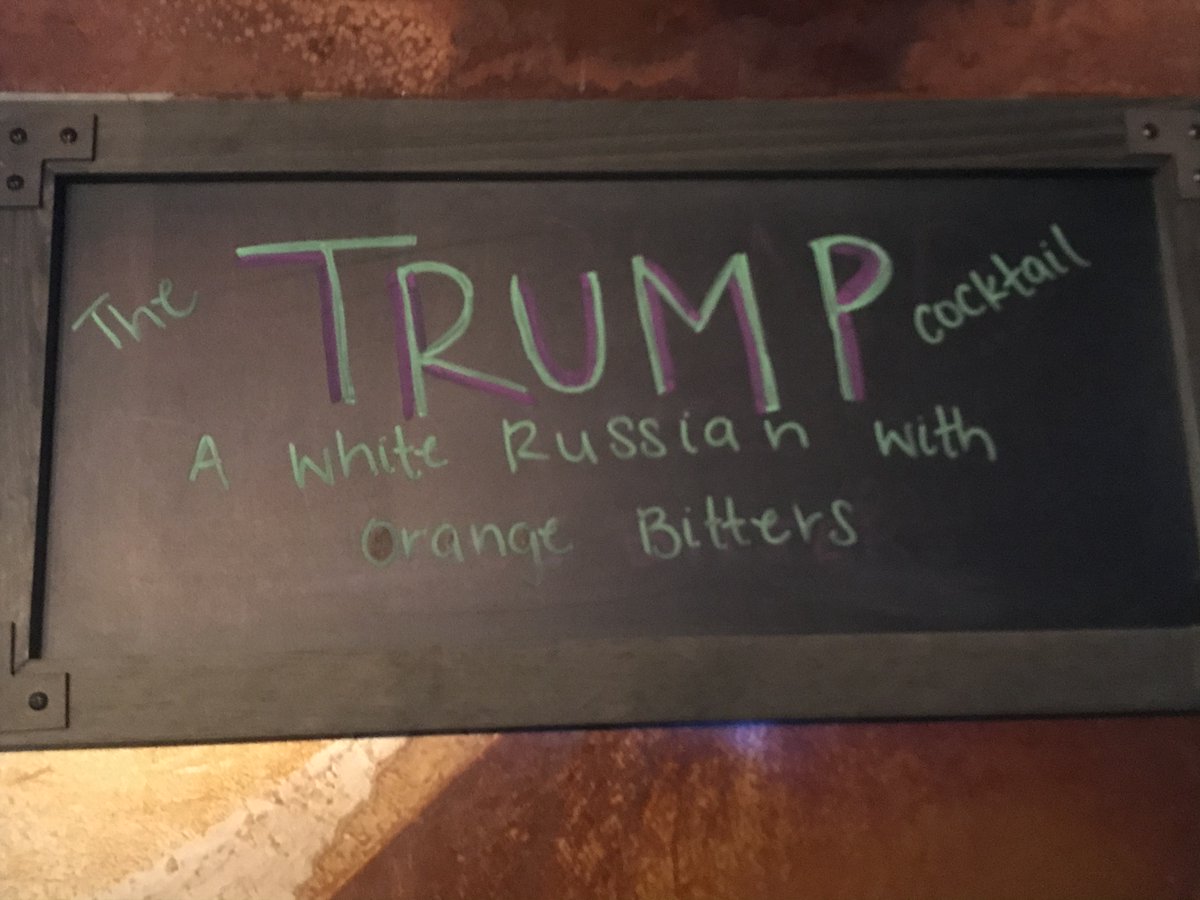 The TRUMP cocktail
A white Russian with
Orange Bitters